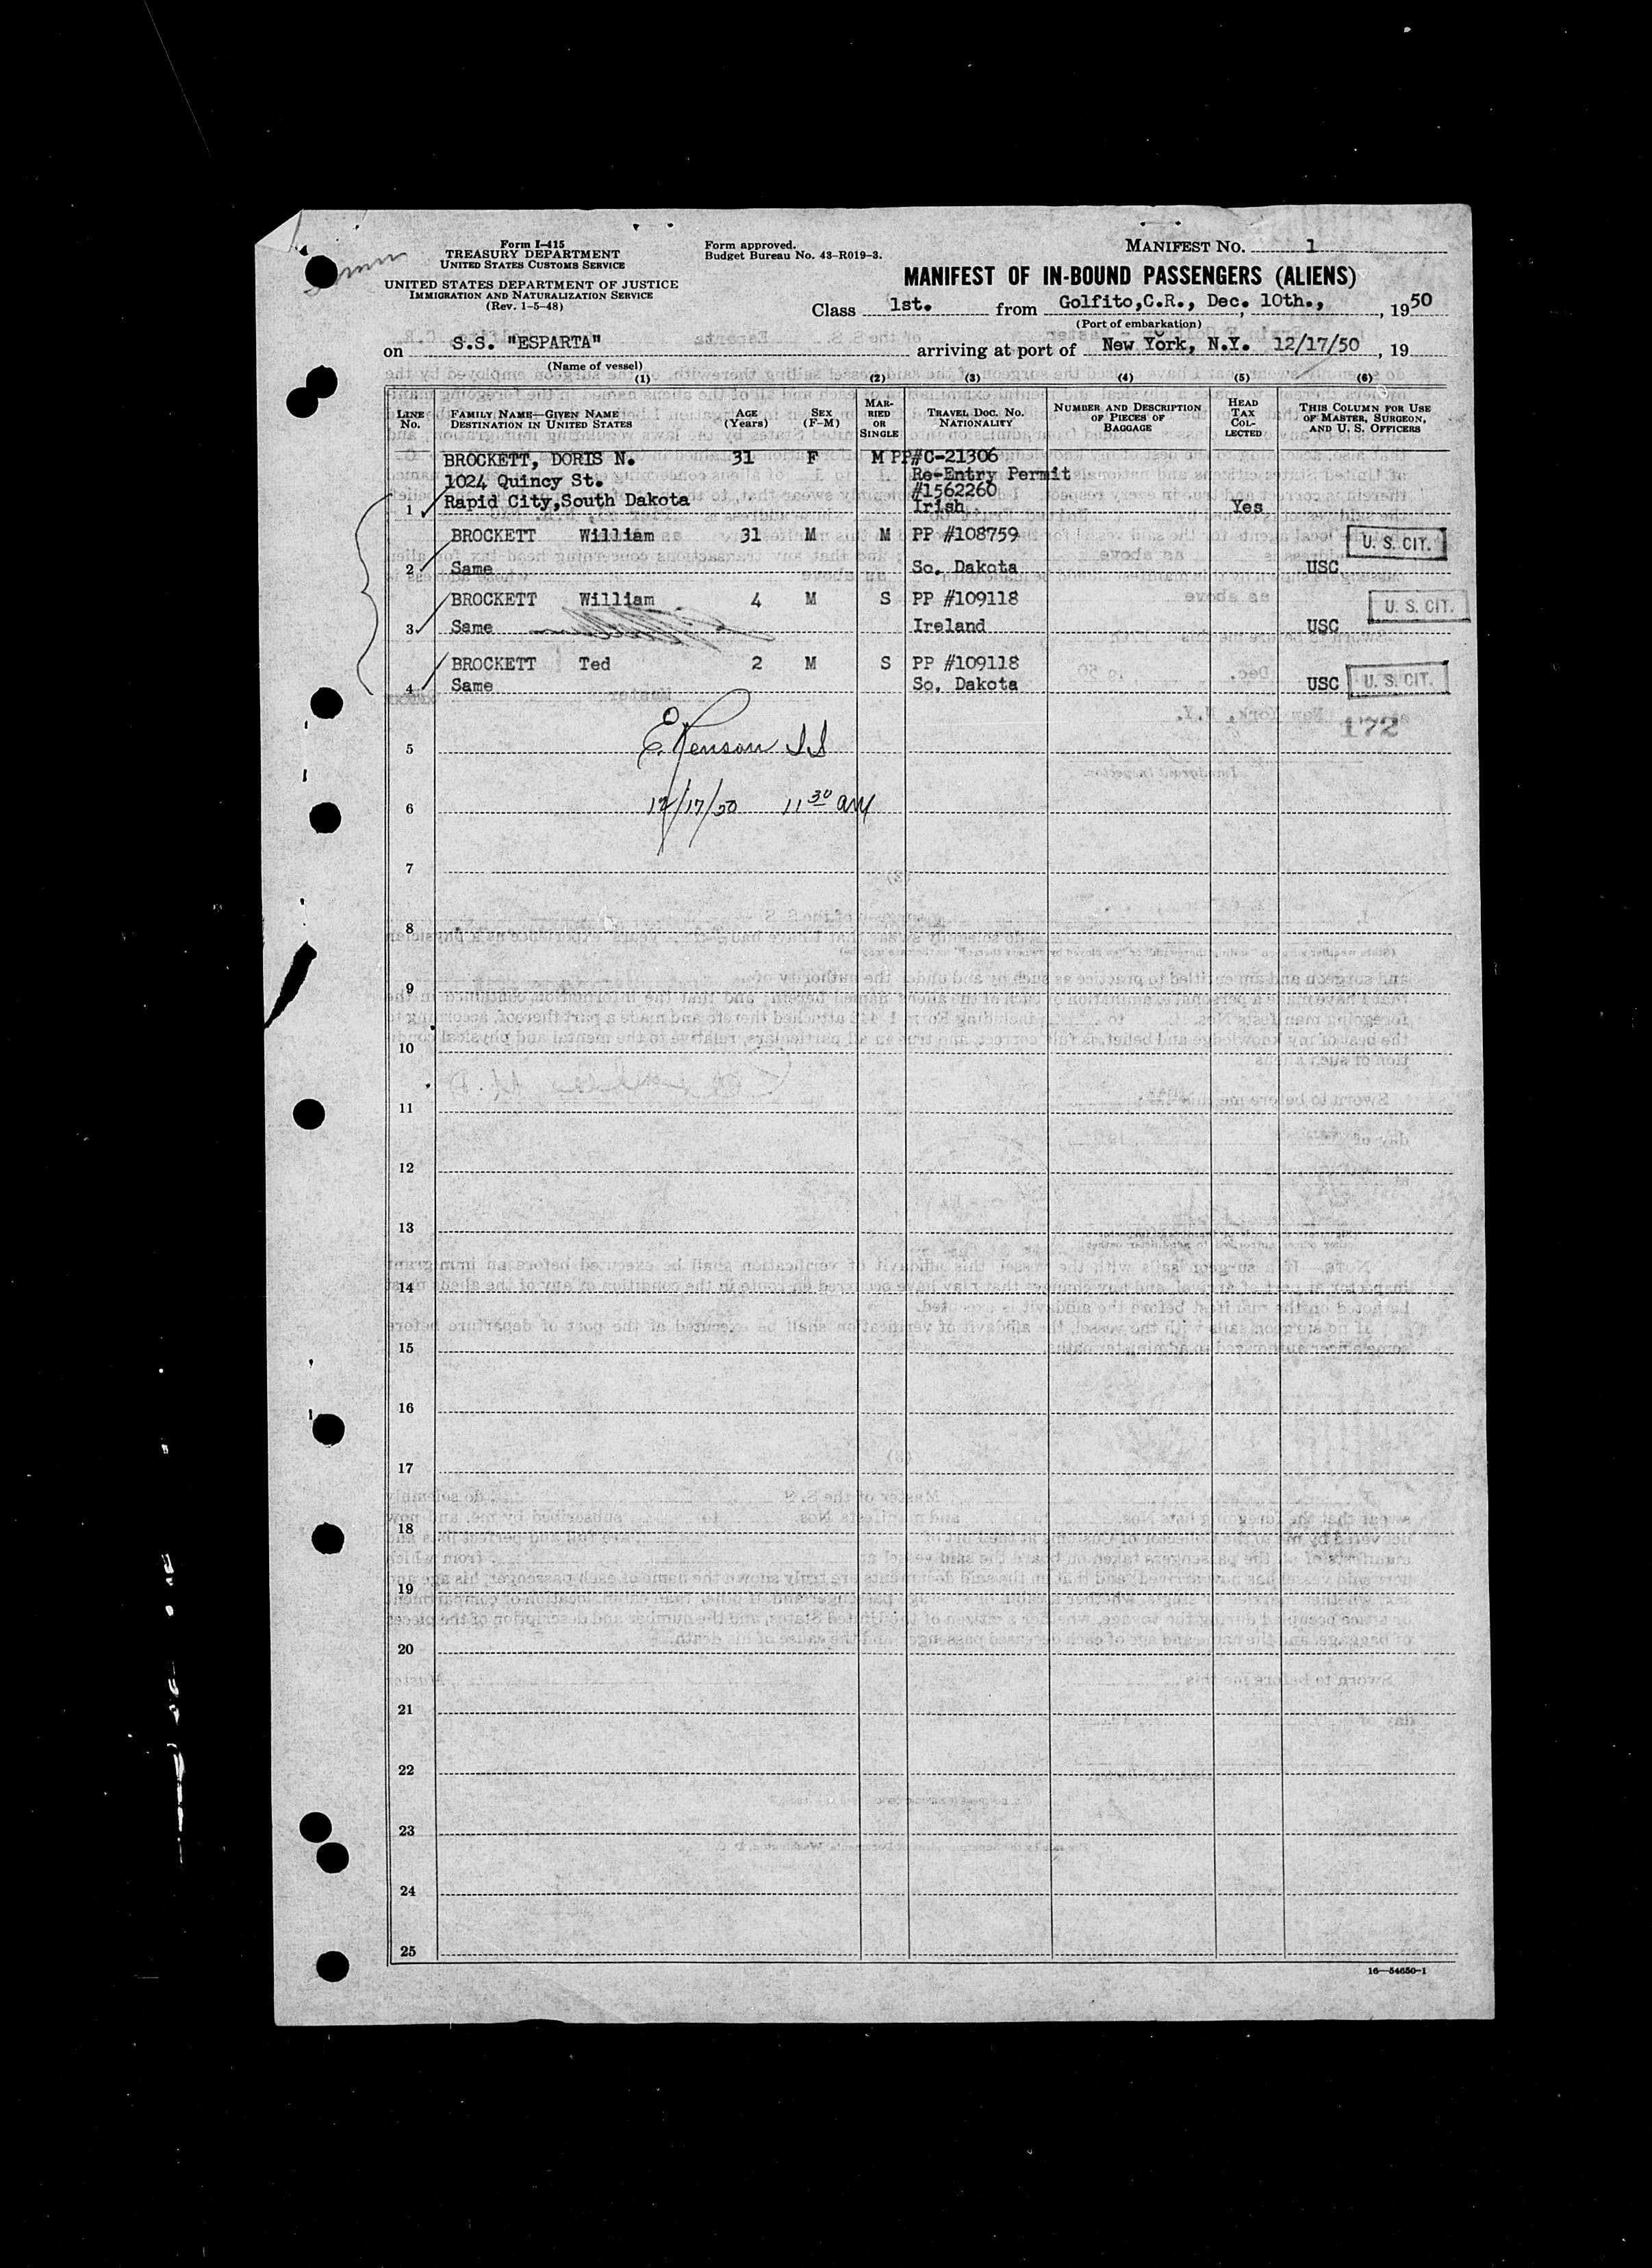 Form I-415
TREASURY DEPARTMENT
UNITED STATES CUSTOMS SERVICE
UNITED STATES DEPARTMENT OF JUSTICE
IMMIGRATION AND NATURALIZATION SERVICE
(Rev. 1-5-48)
Form approved.
Budget Bureau No. 43-R019-3.
MANIFEST NO. 1
MANIFEST OF IN-BOUND PASSENGERS (ALIENS)
Class 1st. from Golfito,C.R., Dec. 10th., , 1950
(Port of embarkation)
on S.S. "ESPARTA" arriving at port of New York, N.Y. 12/17/50 , 19
(Name of vessel)
(1) (2) (3) (4) (5) (6)
LINE No. FAMILY NAME—GIVEN NAME DESTINATION IN UNITED STATES AGE (Years) SEX (F-M) MARRIED OR SINGLE TRAVEL DOC. NO. NATIONALITY NUMBER AND DESCRIPTION OF PIECES OF BAGGAGE HEAD TAX COLLECTED THIS COLUMN FOR USE OF MASTER, SURGEON, AND U. S. OFFICERS
BROCKETT, DORIS N. 31 F M PP#C-21306
1024 Quincy St. Re-Entry Permit
Rapid City,South Dakota #1562260
1 Irish Yes
BROCKETT William 31 M M PP #108759 U. S. CIT.
2 Same So. Dakota USC
BROCKETT William 4 M S PP #109118 U. S. CIT.
3 Same Ireland USC
BROCKETT Ted 2 M S PP #109118
4 Same So. Dakota USC U. S. CIT.
172
5
12/17/50 11 30 AM
6
7
8
9
10
11
12
13
14
15
16
17
18
19
20
21
22
23
24
25
16—54650-1